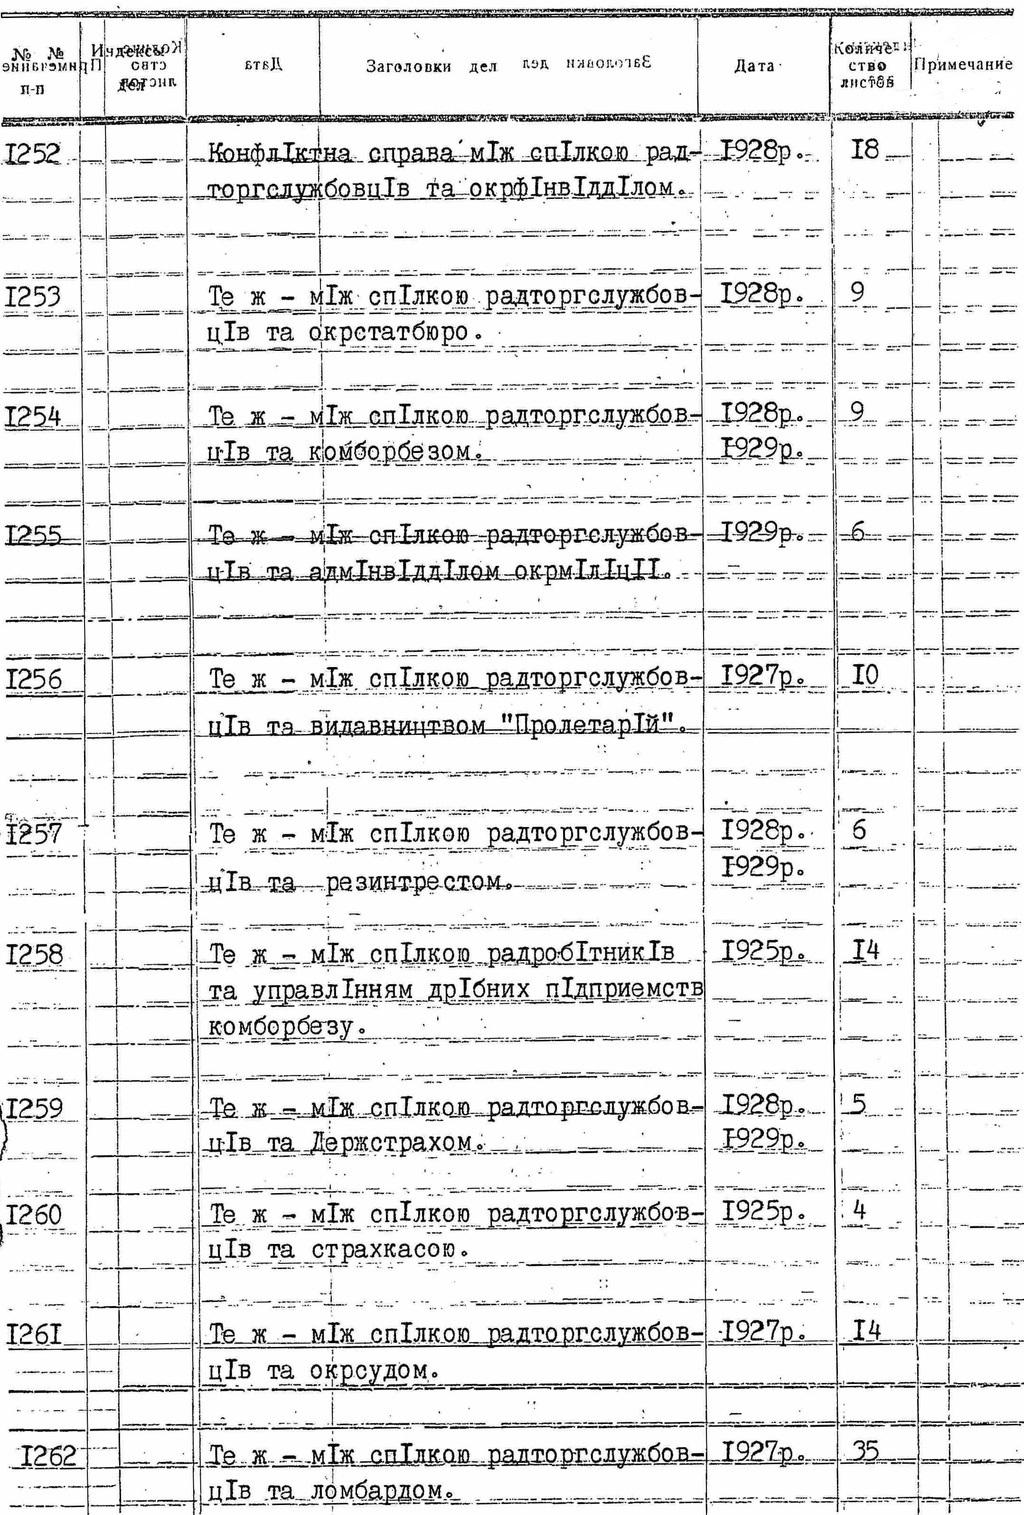 № № п-п Индексы дел Заголовки дел Дата Количество листов Примечание
I252 КонфлIктна справа мIж спIлкою рад- I928р. I8
торгслужбовцIв та окрфIнвIддIлом.
I253 Те ж - мIж спIлкою радторгслужбов- I928р. 9
цIв та окрстатбюро.
I254 Те ж - мIж спIлкою радторгслужбов- I928р. 9
цIв та комборбезом. I929р.
I255 Те ж - мIж спIлкою радторгслужбов- I929р. 6
цIв та адмIнвIддIлом окрмIлIцII.
I256 Те ж - мIж спIлкою радторгслужбов- I927р. I0
цIв та видавництвом "ПролетарIй".
I257 Те ж - мIж спIлкою радторгслужбов- I928р. 6
цIв та резинтрестом. I929р.
I258 Те ж - мIж спIлкою радробIтникIв I925р. I4
та управлIнням дрIбних пIдприемств
комборбезу.
I259 Те ж - мIж спIлкою радторгслужбов- I928р. 5
цIв та Держстрахом. I929р.
I260 Те ж - мIж спIлкою радторгслужбов- I925р. 4
цIв та страхкасою.
I26I Те ж - мIж спIлкою радторгслужбов- I927р. I4
цIв та окрсудом.
I262 Те ж - мIж спIлкою радторгслужбов- I927р. 35
цIв та ломбардом.